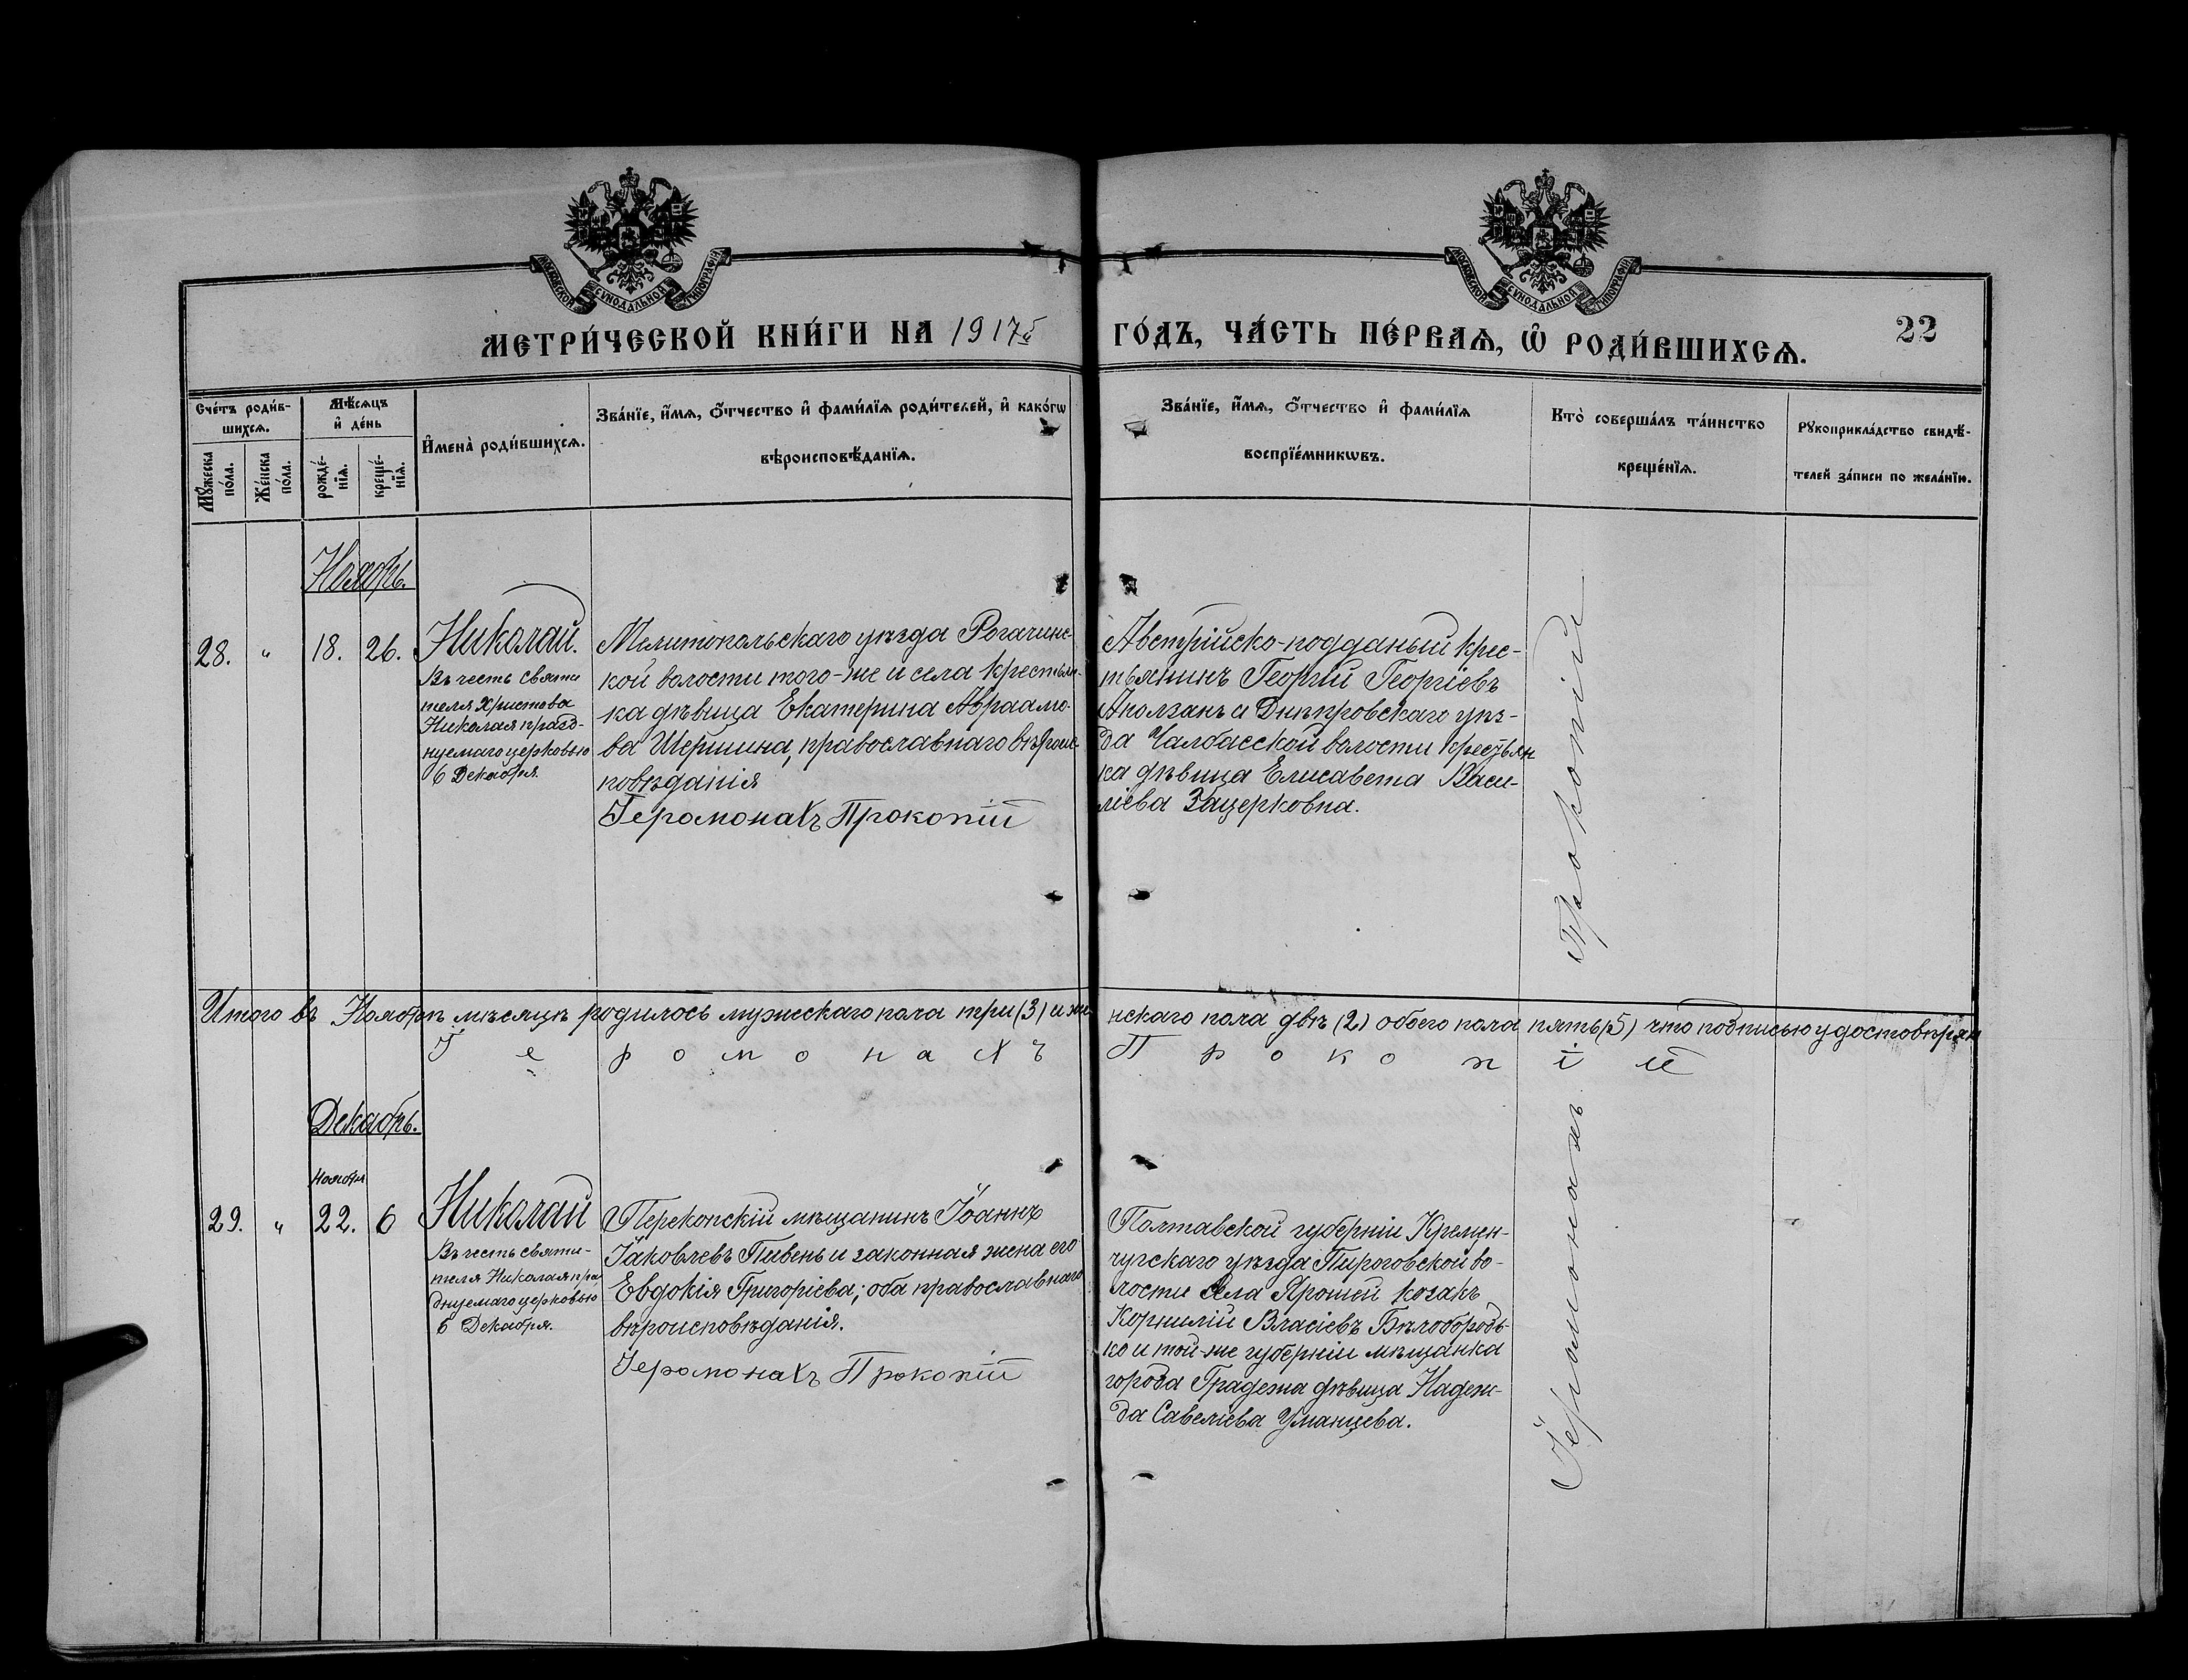 МОСКОВСКОЙ СѴНОДАЛЬНОЙ ТИПОГРАФІИ
МОСКОВСКОЙ СѴНОДАЛЬНОЙ ТИПОГРАФІИ
МЕТРИ́ЧЕСКОЙ КНИ́ГИ НА 1917 г.
ГО́ДЪ, ЧА́СТЬ ПЕ́РВАѦ, Ѡ҆ РОДИ́ВШИХСѦ.
22
Сче́тъ роди́в-
шихсѧ.
Мꙋ́жеска по́ла.
Же́нска по́ла.
Мѣ́сѧцъ
и҆ де́нь
рожде́-нїѧ.
креще́-нїѧ.
И҆мена̀ роди́вшихсѧ.
Зва́нїе, и҆́мѧ, ѻ҆́тчество и҆ фами́лїѧ роди́телей, и҆ како́гѡ
вѣроисповѣ́данїѧ.
Зва́нїе, и҆́мѧ, ѻ҆́тчество и҆ фами́лїѧ
воспрїе́мникѡвъ.
Кто̀ соверша́лъ та́инство
креще́нїѧ.
Рꙋкоприкла́дство свидѣ́-
телей за́писи по жела́нїю.
Ноябрь.
28. " 18. 26.
Николай.
Въ честь святи
теля Христова
Николая празд-
нуемаго церковью
6 Декабря.
Мелитопольскаго уѣзда Рогачинс-
кой волости того-же и села крестьян-
ка дѣвица Екатерина Авраамо-
ва Шершина, православнаго вѣроис-
повѣданія
Іеромонахъ Прокопій
Австрійско-подданый крес-
тьянинъ Георгій Георгіевъ
Аползанъ и Днѣпровскаго уѣз-
да Чалбасской волости крестьян
ка дѣвица Елисавета Васи-
ліева Зацерковна.
Итого въ Ноябрѣ мѣсяцѣ родилось мужескаго пола три (3) и же
нскаго пола двѣ (2) обоего пола пять (5) что подписью удостовѣряю
Іеромонахъ Прокопій
Декабрь.
Ноября
29. " 22. 6
Николай
Въ честь святи-
теля Николая пра
зднуемаго церковью
6 Декабря.
Перекопскій мѣщанинъ Іоаннъ
Іаковлевъ Пивень и законная жена его
Евдокія Григоріева; оба православнаго
вѣроисповѣданія.
Іеромонахъ Прокопій
Полтавской губерніи Кремен-
чугскаго уѣзда Пироговской во-
лости села Ярошей козакъ
Корнилій Власіевъ Бѣлобородь-
ко и той-же губерніи мѣщанка
города Градежа дѣвица Надеж-
да Савеліева Уманцева.
Іеромонахъ Прокопій